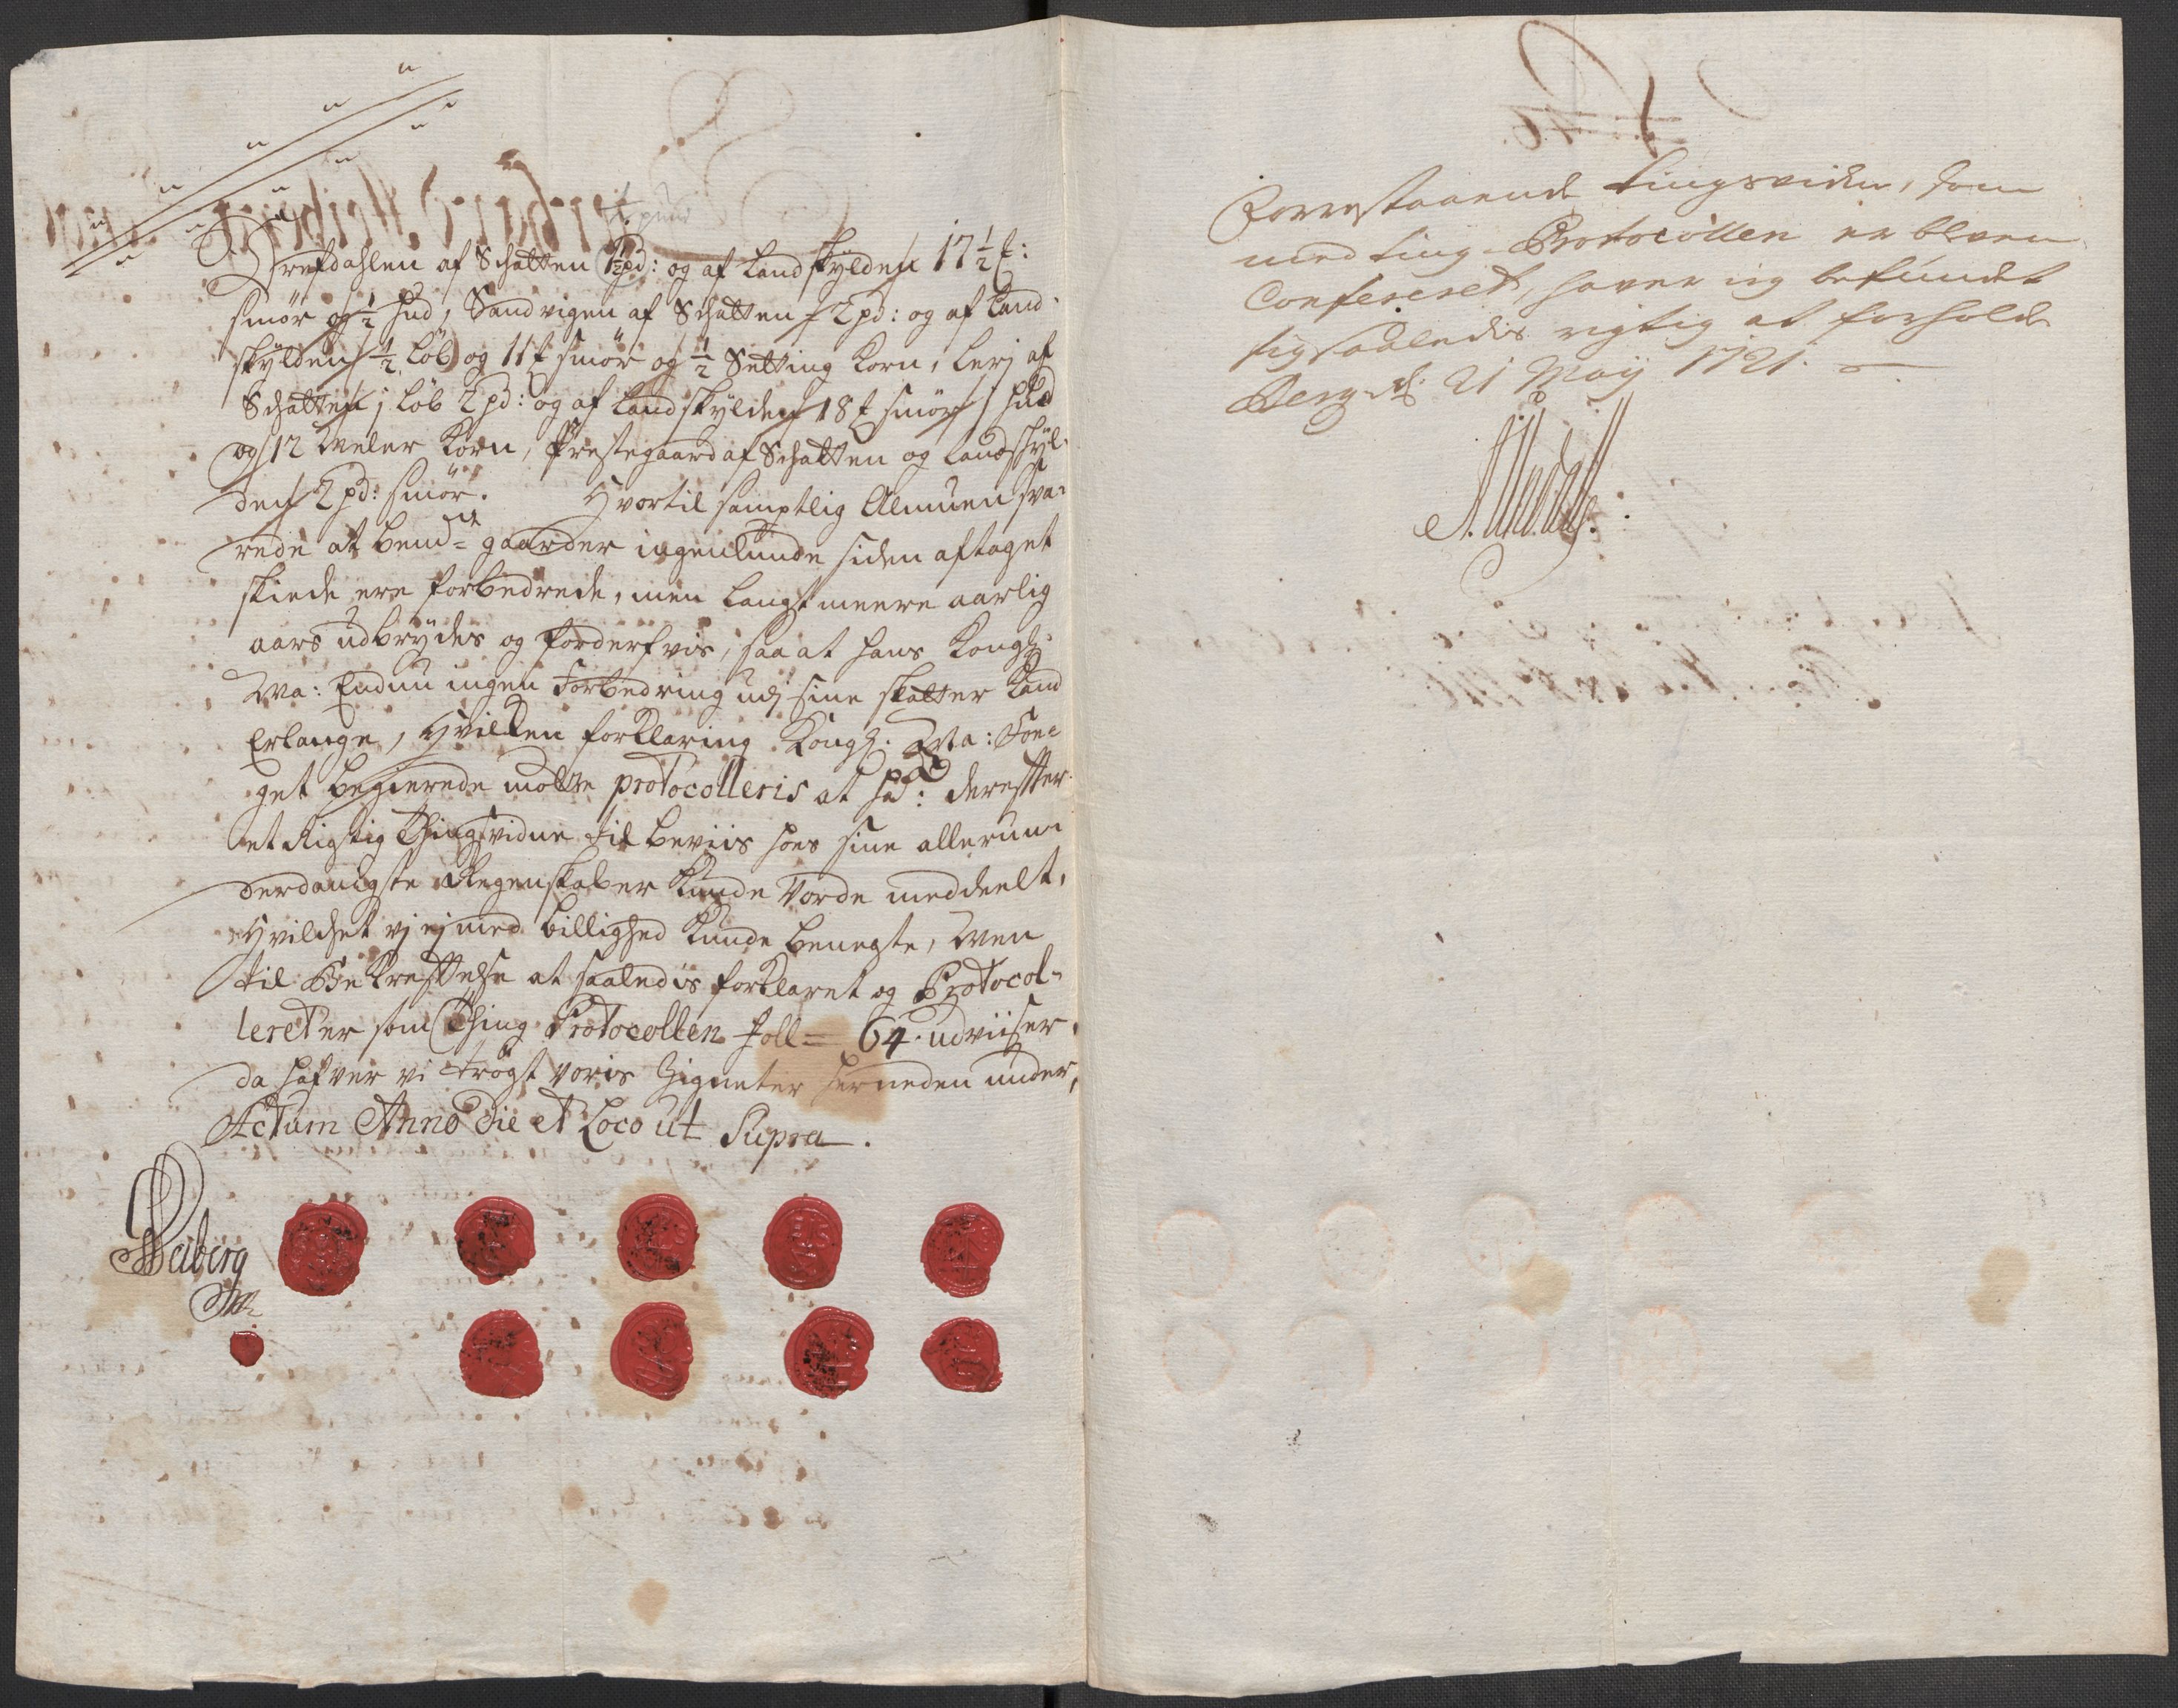 Trefdahlen af Schatten 1½pd: og af Landskylden 17½ ℔:
smör og ½ hud, Sandvigen af Schatten - 2 pd: og af Land-
skylden ½ Löb og 11 ℔ smör og ½ Setting Korn, Lerj af
Schatten j Löb 2 pd: og af Landskylden 18 ℔ smör j hud
og 12 Meler Korn, Præstegaard af Schatten og Landskyl-
den 2 pd: smör. Hvortil samptlig Almuen sva-
rede at bemte gaarder ingenlunde siden aftaget
skiede ere forbedrede, men langt meere aarlig
aars udbrydes og forderfvis, saa at Hans Kongl:
Ma: Endnu ingen Forbedring udj sine skatter kand
Erlange, Hvilken forklaring Kongl. Ma: Fou-
get begierede motte protocolleris at hand: derefter
et Rigtig Thingsvidne til beviis hos sine allerun-
derdanigste Regenskaber kunde vorde meddeelt,
Hvilchet vj ej med billighed kunde benegte, Men
til Bekreftelse at saaledis forklaret og Protocol-
leret er som Thing Protocollen Foll= 64. udviiser,
da hafver vi trögt voris Zigneter her neden under,
Actum Anno Die et Loco ut Supra.
Heiberg
Forrestaaende Tingsvidne, som
med Ting-Protocollen er bleven
Confereret, haver ieg befundet
sig saaledis rigtig at forholde
Berg. d. 21 Maij 1721.